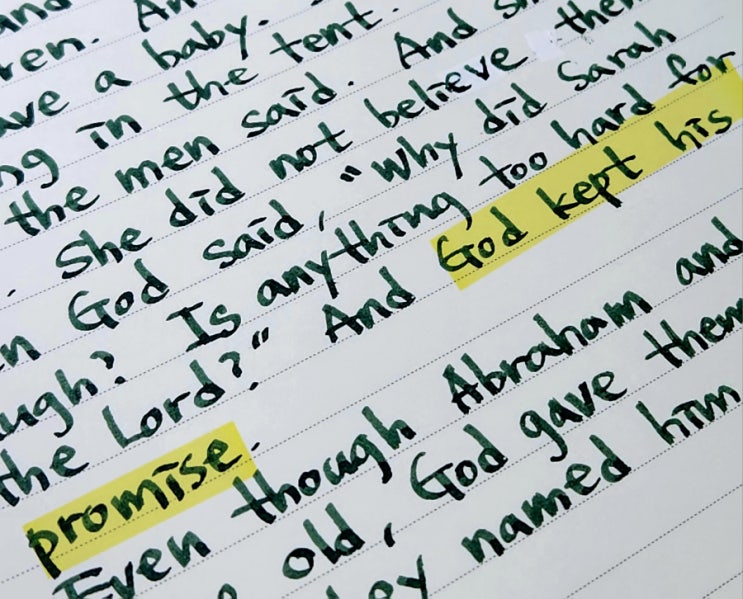 and
ren. An
ave a baby.
ng in the tent.
the men said. And sh
. She did not believe the
n God said, "Why did Sarah
ugh? Is anything too hard for
the Lord?" And God kept his
promise.
Even though Abraham and
old, God gave them
ey named him